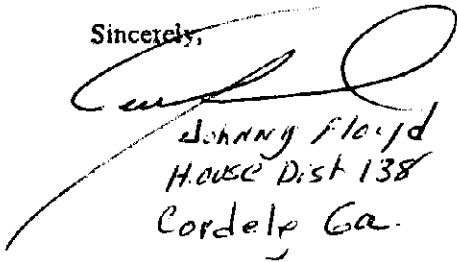 Sincerely,
Johnny Floyd
House Dist 138
Cordele Ga.